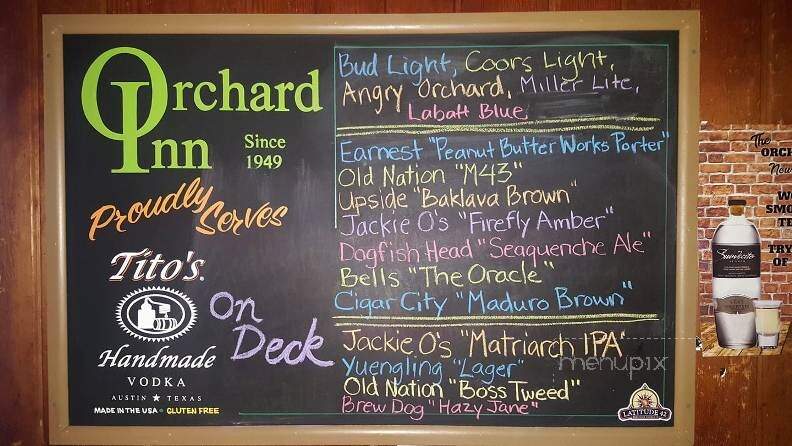 Orchard
Inn
Since
1949
Proudly
Serves
Tito's
Handmade
VODKA
AUSTIN ★ TEXAS
MADE IN THE USA • GLUTEN FREE
Bud Light, Coors Light,
Angry Orchard, Miller Lite,
Labatt Blue
Earnest "Peanut Butter Works Porter"
Old Nation "M43"
Upside "Baklava Brown"
Jackie O's "Firefly Amber"
Dogfish Head "Seaquenche Ale"
Bells "The Oracle"
Cigar City "Maduro Brown"
On
Deck
Jackie O's "Matriarch IPA"
Yuengling "Lager"
Old Nation "Boss Tweed"
Brew Dog "Hazy Jane"
LATITUDE 42
menupix
The
ORCH
Now
W
SMO
TE
TRY
OF